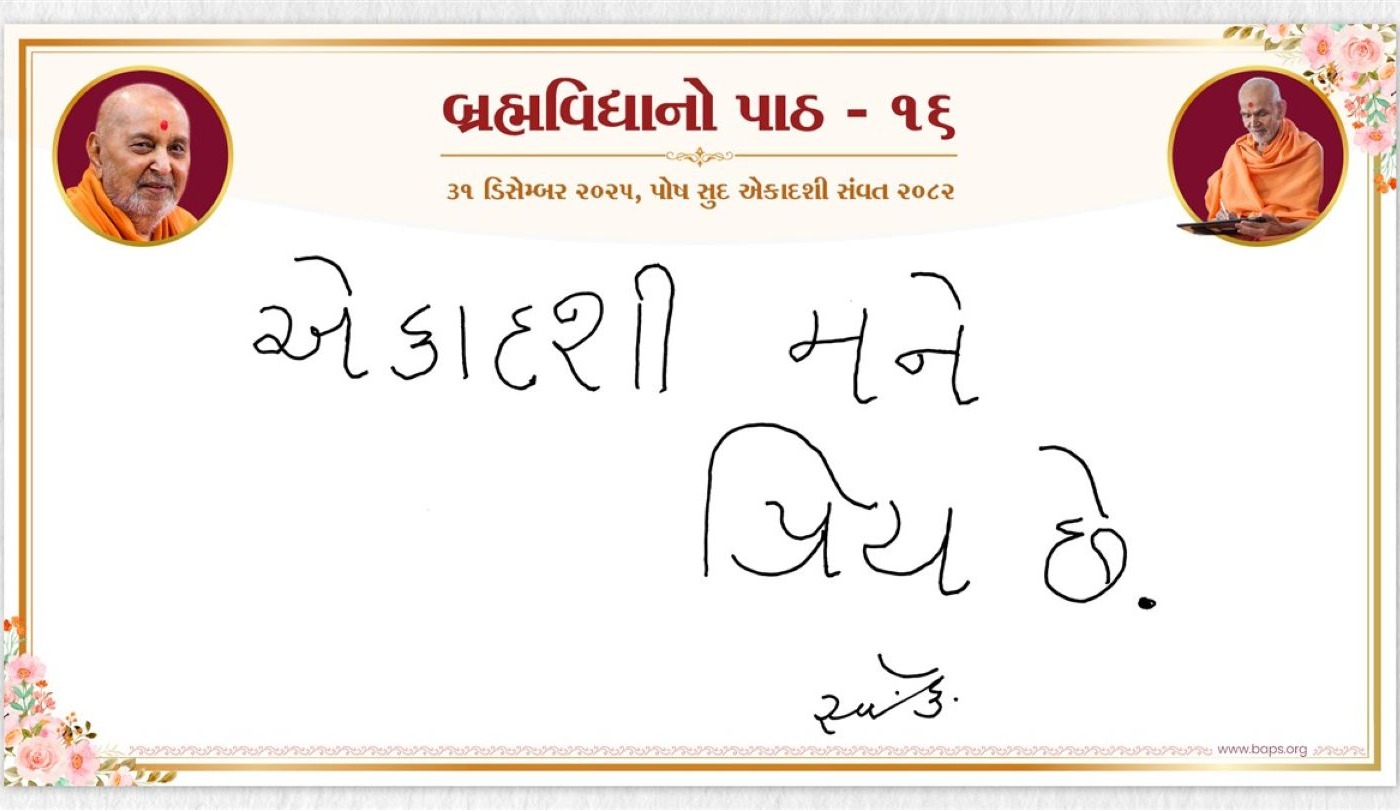 બ્રહ્મવિદ્યાનો પાઠ - ૧૬
૩૧ ડિસેમ્બર ૨૦૨૫, પોષ સુદ એકાદશી સંવત ૨૦૮૨
એકાદશી મને
પ્રિય છે.
www.baps.org